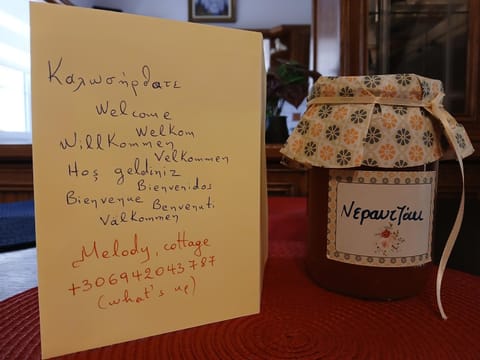 Καλωσήρθατε
Welcome
Welkom
Willkommen
Velkommen
Hoş geldiniz
Bienvenidos
Bienvenue Benvenuti
Välkommen
Melody, cottage
+306942043787
(what's up)
Νεραντζάκι